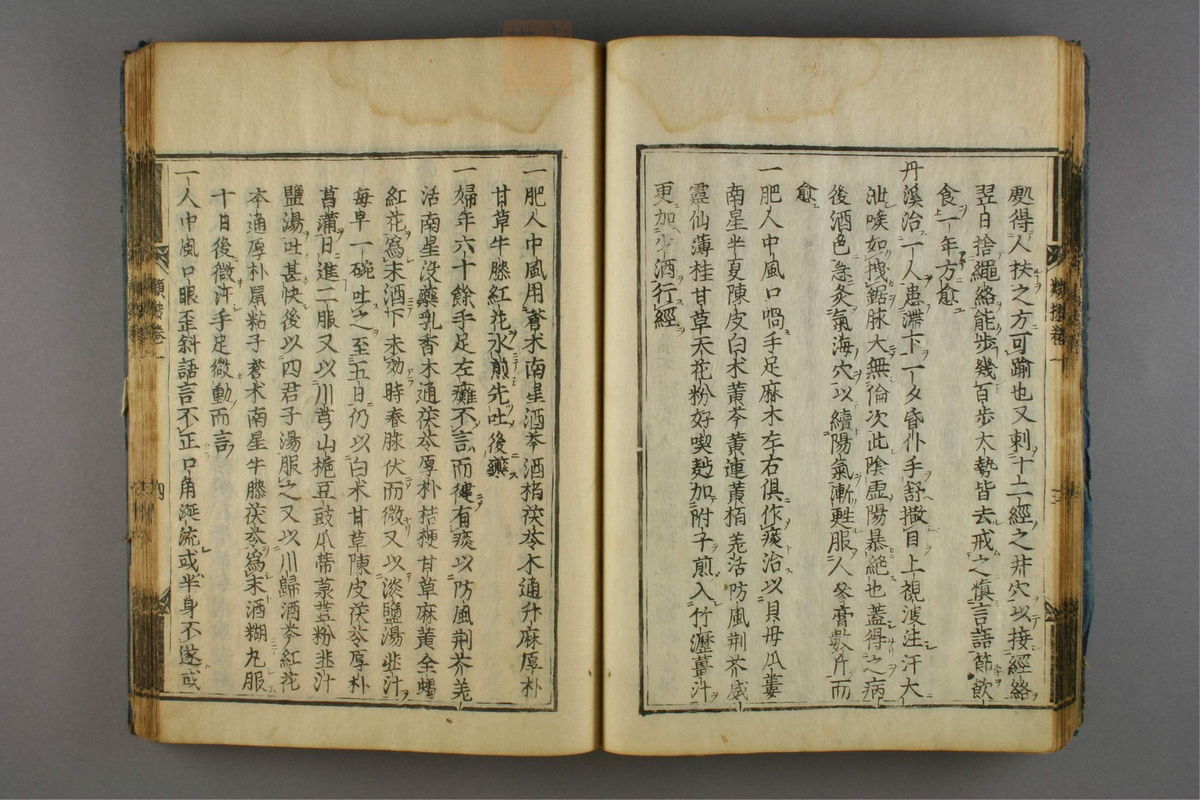 處得人扶之方可踰也又刺十二經之井穴以接經絡
翌日捨繩絡能步幾百步大勢皆去戒之愼言語節飲
食一年方愈
丹溪治一人患滯下一夕昏仆手舒撒目上視溲注汗大
泄喉如拽鋸脉大無倫次此陰虛陽暴絕也蓋得之病
後酒色急灸氣海穴以續陽氣漸甦服人參膏數斤而
愈
一肥人中風口喎手足麻木左右俱作痰治以貝母瓜蔞
南星半夏陳皮白朮黃芩黃連黃栢羌活防風荊芥威
靈仙薄桂甘草天花粉好喫麪加附子煎入竹瀝薑汁
更加少酒行經
一肥人中風用蒼朮南星酒芩酒栢茯苓木通升麻厚朴
甘草牛膝紅花水煎先吐後藥
一婦年六十餘手足左癱不言而健有痰以防風荊芥羌
活南星沒藥乳香木通茯苓厚朴桔梗甘草麻黃全蝎
紅花爲末酒下未効時春脉伏而微又以淡鹽湯韭汁
每早一碗吐之至五日仍以白朮甘草陳皮茯苓厚朴
菖蒲日進二服又以川芎山梔豆豉瓜蒂菉荳粉韭汁
鹽湯吐甚快後以四君子湯服之又以川歸酒芩紅花
木通厚朴鼠粘子蒼朮南星牛膝茯苓爲末酒糊丸服
十日後微汗手足微動而言
一人中風口眼歪斜語言不正口角涎流或半身不遂或